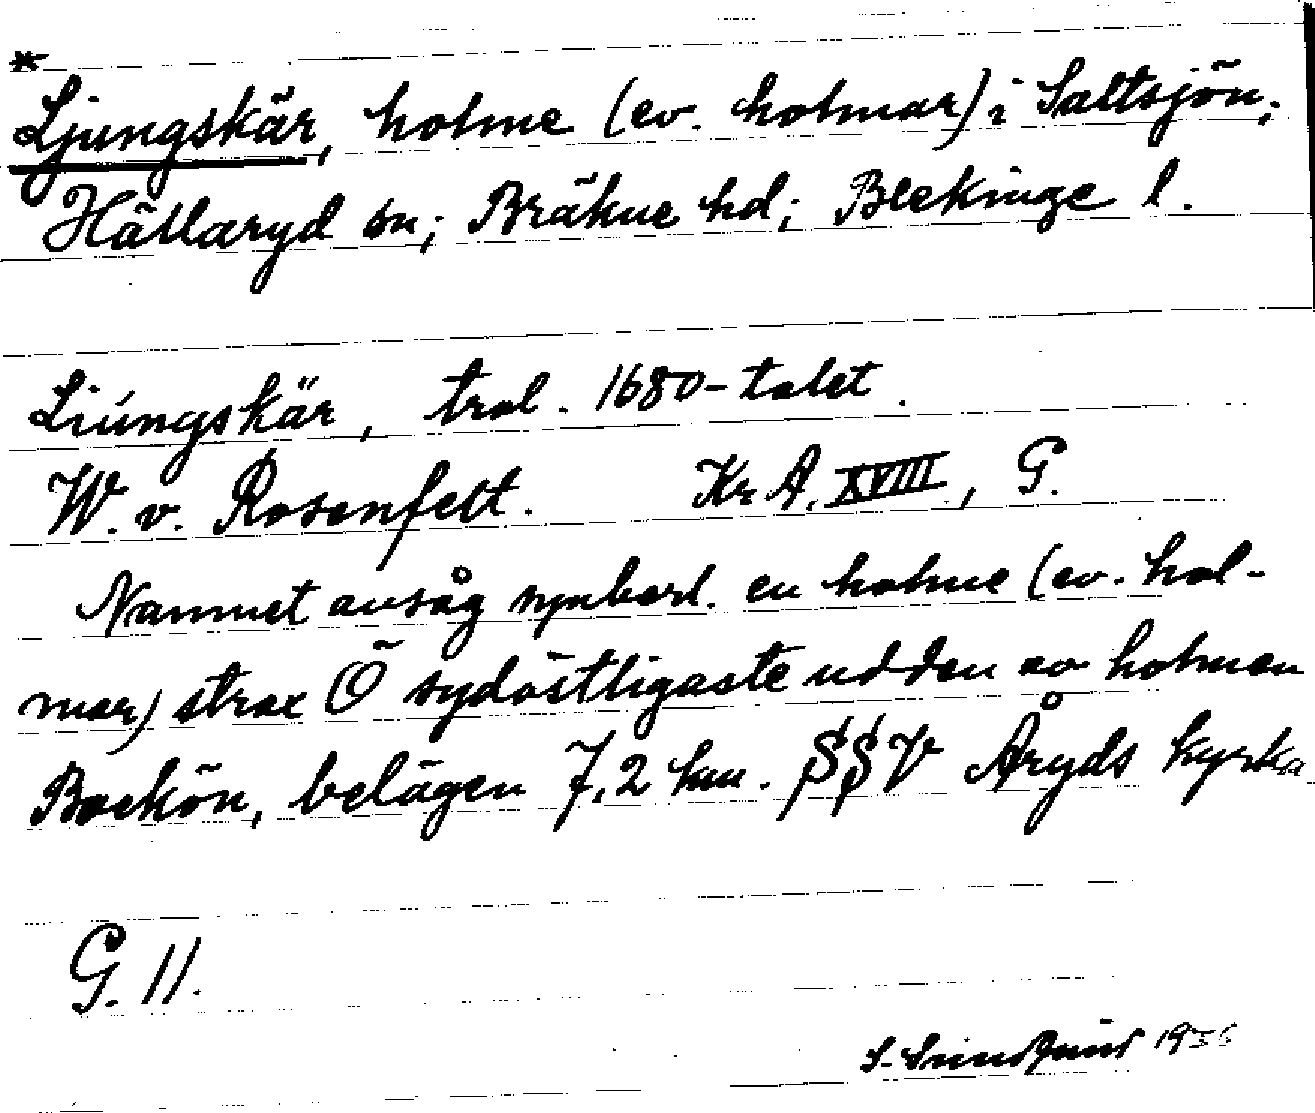 *
Ljungskär, holme (ev. holmar) i Saltsjön;
Hällaryd sn; Bräkne hd; Blekinge l.
Liúngskär, trol. 1680-talet.
W. v. Rosenfelt. Kr A. XVIII, G.
Namnet avsåg synbarl. en holme (ev. hol-
mar) strax Ö sydöstligaste udden av holmen
Bockön, belägen 7,2 km. SSV Åryds kyrka
G. 11.
S.